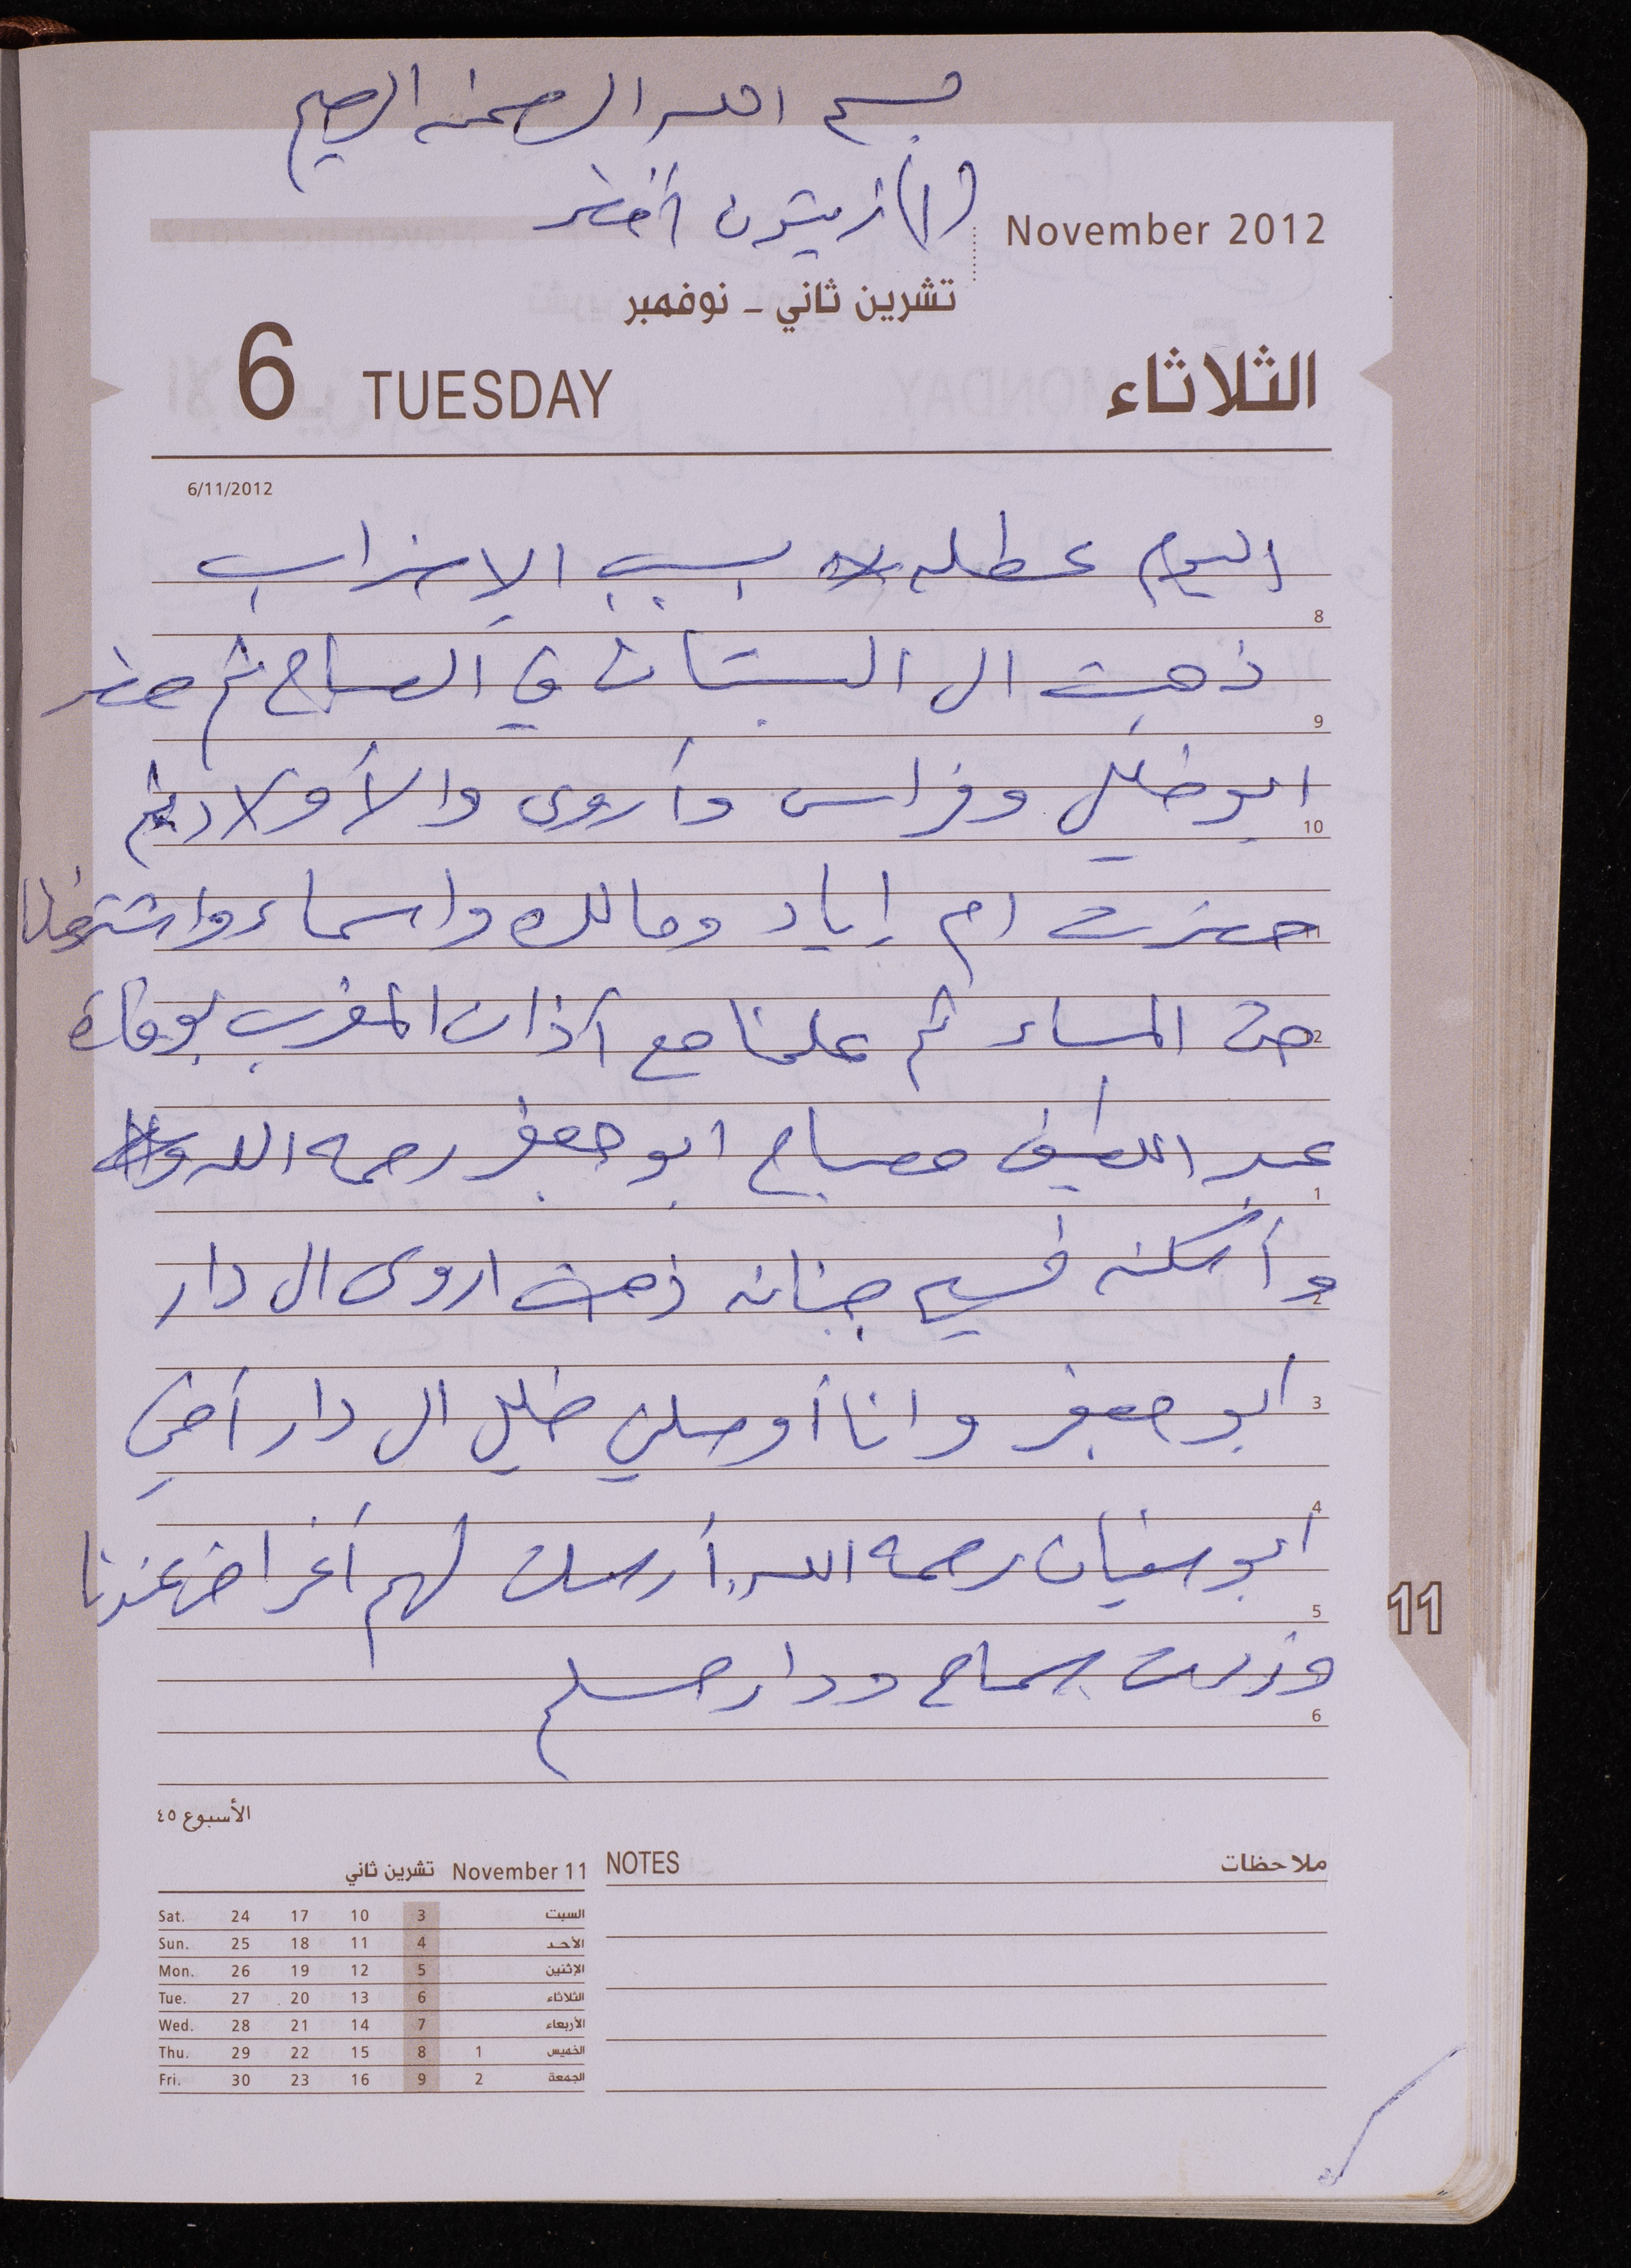 بسم الله الرحمن الرحيم
(١) زيتون أخضر
November 2012
تشرين ثاني - نوفمبر
6 TUESDAY الثلاثاء
6/11/2012
اليوم عطله بسبب الاضراب
8
ذهبت الى البستان في الصباح ثم حضر
9
ابو خليل وفراس وأروى والأولاد ثم
10
حضرت ام إياد ومالك واسماء واشتغلنا
11
حتى المساء ثم علمنا مع آذان المغرب بوفاة
12
عبد اللطيف مصباح ابو جعفر رحمه الله
1
وأسكنه فسيح جنانه ذهبت اروى الى دار
2
ابو جعفر وانا أوصلني خليل الى دار أخي
3
4
ابو سفيان رحمه الله أرسلت لهم أغراض عندنا
5
وزرت سماح ودار مسلم
6
11
الأسبوع ٤٥
تشرين ثاني November 11
NOTES ملاحظات
Sat. 24 17 10 3 السبت
Sun. 25 18 11 4 الأحد
Mon. 26 19 12 5 الإثنين
Tue. 27 20 13 6 الثلاثاء
Wed. 28 21 14 7 الأربعاء
Thu. 29 22 15 8 1 الخميس
Fri. 30 23 16 9 2 الجمعة